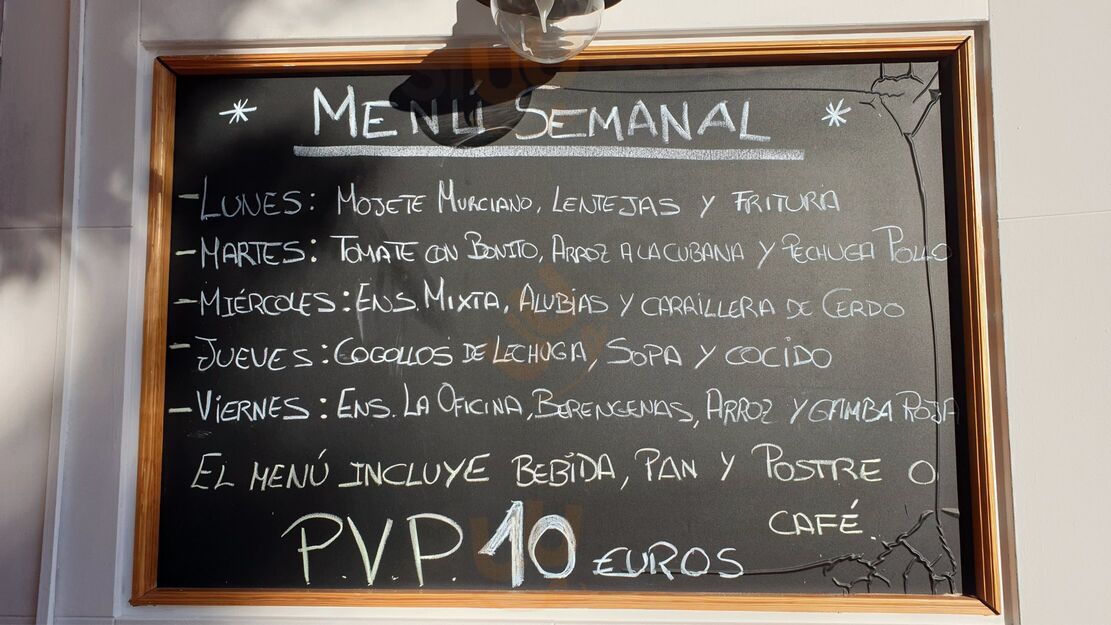 * MENÚ SEMANAL *
- LUNES: MOJETE MURCIANO, LENTEJAS Y FRITURA
- MARTES: TOMATE CON BONITO, ARROZ A LA CUBANA Y PECHUGA POLLO
- MIÉRCOLES: ENS. MIXTA, ALUBIAS Y CARRILLERA DE CERDO
- JUEVES: COGOLLOS DE LECHUGA, SOPA Y COCIDO
- VIERNES: ENS. LA OFICINA, BERENGENAS, ARROZ Y GAMBA ROJA
EL MENÚ INCLUYE BEBIDA, PAN Y POSTRE O
CAFÉ.
P.V.P. 10 EUROS